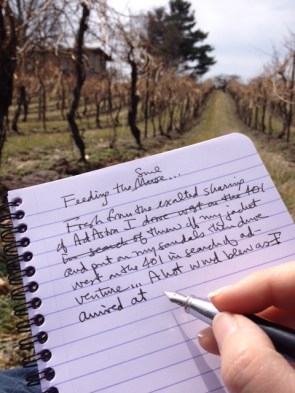 Feeding the Muse...
Fresh from the exalted sharing
of Ad Astra I drove west on the 401
in search of threw off my jacket
and put on my sandals then drove
west on the 401 in search of ad-
venture... A hot wind blew as I
arrived at